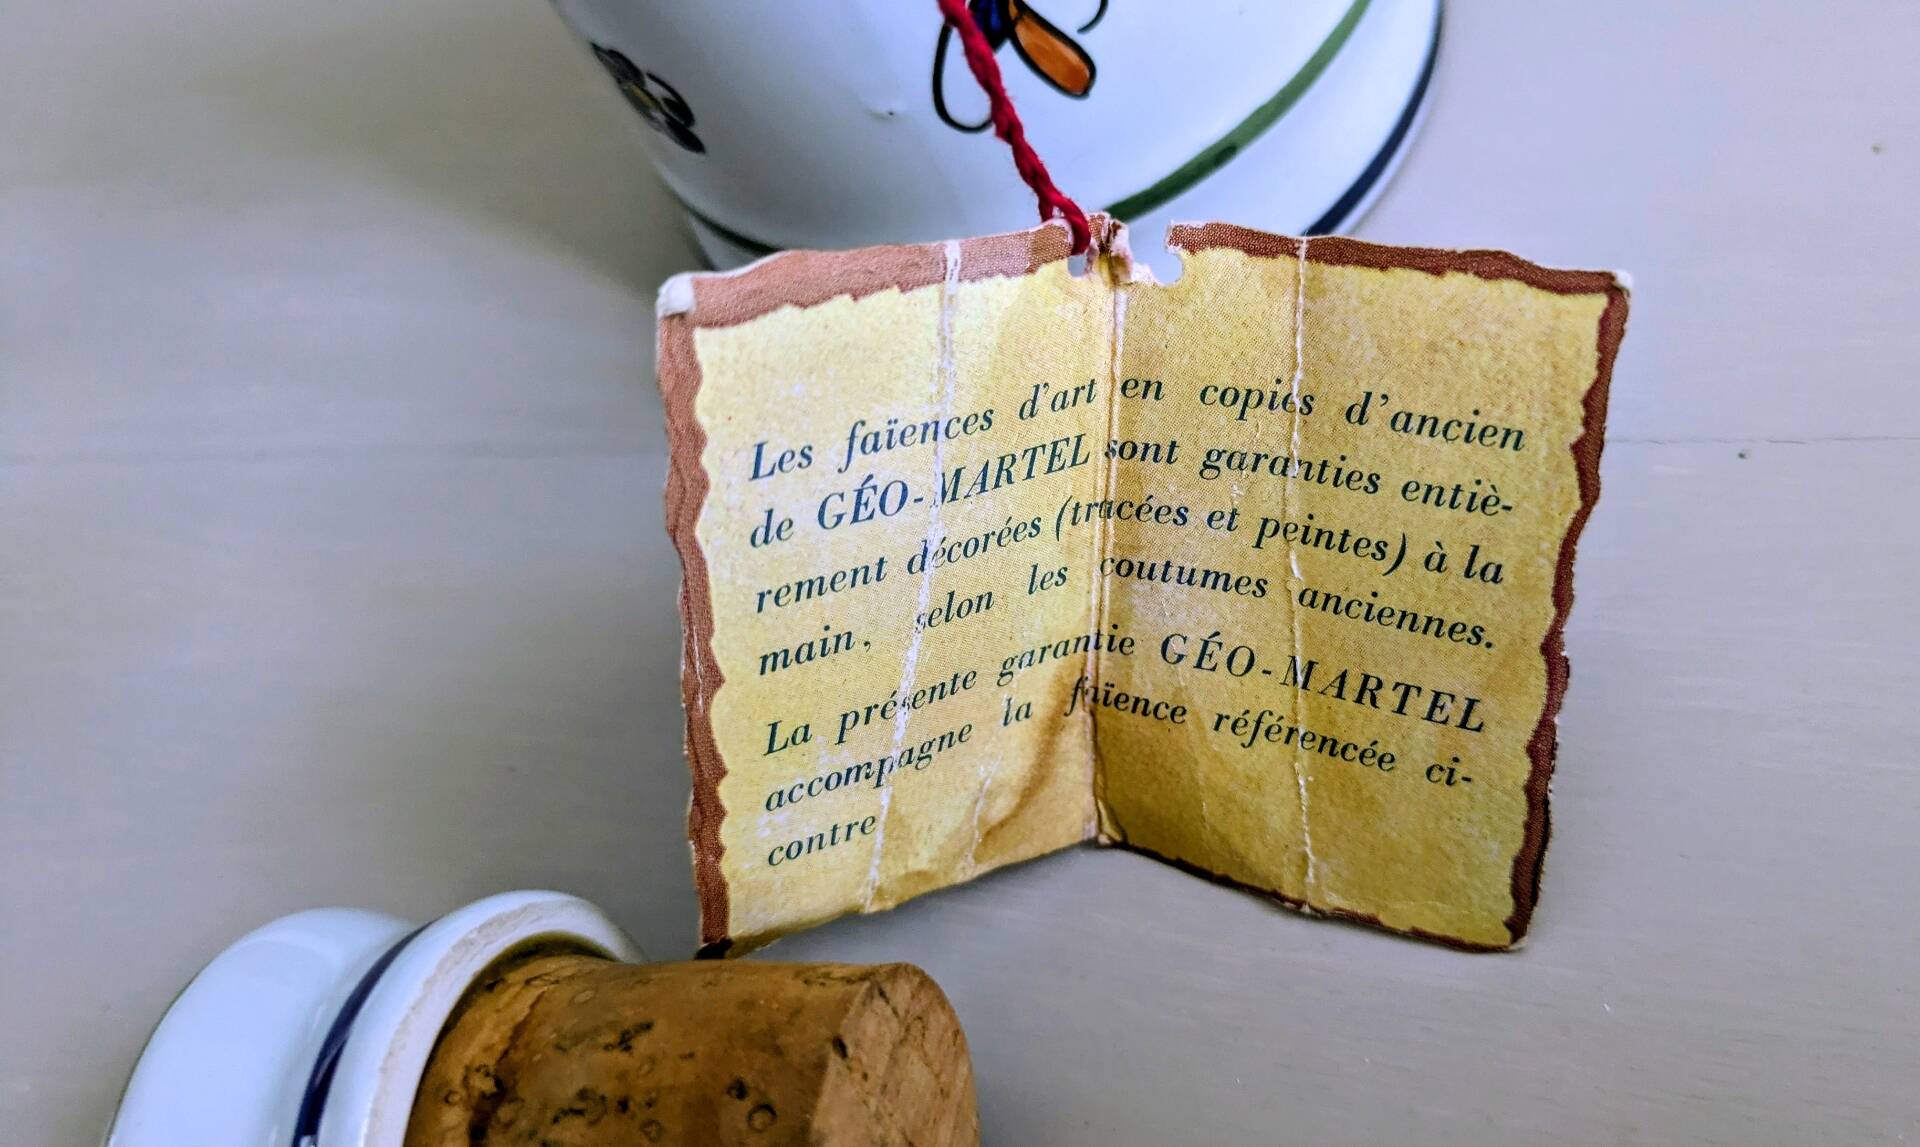 Les faïences d'art en copies d'ancien
de GÉO-MARTEL sont garanties entiè-
rement décorées (tracées et peintes) à la
main, selon les coutumes anciennes.
La présente garantie GÉO-MARTEL
accompagne la faïence référencée ci-
contre